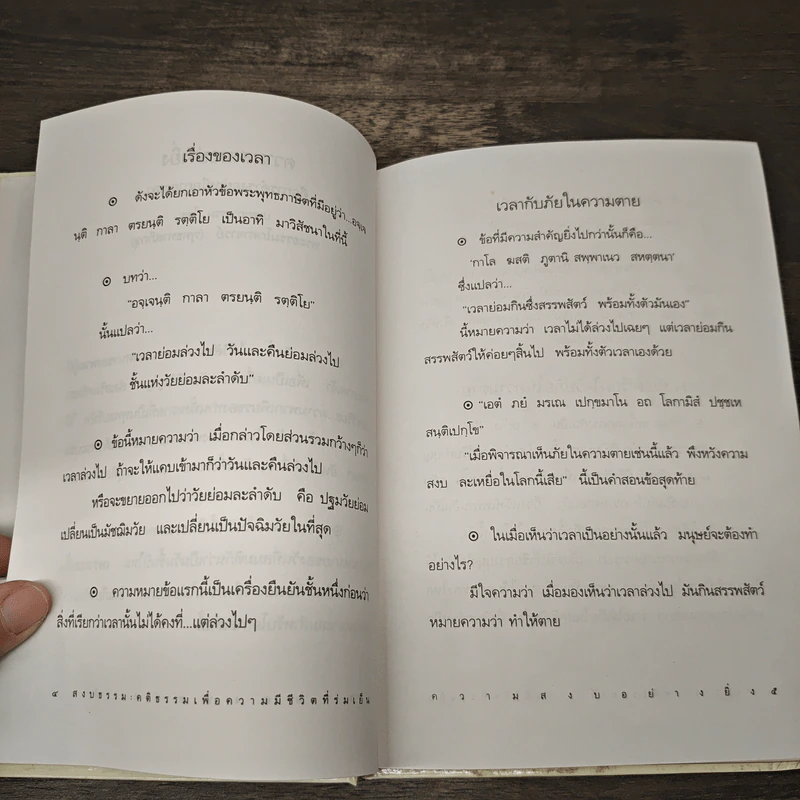 เรื่องของเวลา
๏ ดังจะได้ยกเอาหัวข้อพระพุทธภาษิตที่มีอยู่ว่า...อจฺเจ
นฺติ กาลา ตรยนฺติ รตฺติโย เป็นอาทิ มาวิสัชนาในที่นี้
๏ บทว่า...
"อจฺเจนฺติ กาลา ตรยนฺติ รตฺติโย"
นั้นแปลว่า...
"เวลาย่อมล่วงไป วันและคืนย่อมล่วงไป
ชั้นแห่งวัยย่อมละลำดับ"
๏ ข้อนี้หมายความว่า เมื่อกล่าวโดยส่วนรวมกว้างๆก็ว่า
เวลาล่วงไป ถ้าจะให้แคบเข้ามาก็ว่าวันและคืนล่วงไป
หรือจะขยายออกไปว่าวัยย่อมละลำดับ คือ ปฐมวัยย่อม
เปลี่ยนเป็นมัชฌิมวัย และเปลี่ยนเป็นปัจฉิมวัยในที่สุด
๏ ความหมายข้อแรกนี้เป็นเครื่องยืนยันชั้นหนึ่งก่อนว่า
สิ่งที่เรียกว่าเวลานั้นไม่ได้คงที่...แต่ล่วงไปๆ
๔ สงบธรรม:คติธรรมเพื่อความมีชีวิตที่ร่มเย็น
เวลากับภัยในความตาย
๏ ข้อที่มีความสำคัญยิ่งไปกว่านั้นก็คือ...
'กาโล ฆสติ ภูตานิ สพฺพาเนว สหตฺตนา'
ซึ่งแปลว่า...
"เวลาย่อมกินซึ่งสรรพสัตว์ พร้อมทั้งตัวมันเอง"
นี้หมายความว่า เวลาไม่ได้ล่วงไปเฉยๆ แต่เวลาย่อมกิน
สรรพสัตว์ให้ค่อยๆสิ้นไป พร้อมทั้งตัวเวลาเองด้วย
๏ "เอตํ ภยํ มรเณ เปกฺขมาโน อถ โลกามิสํ ปชฺชเห
สนฺติเปกฺโข"
"เมื่อพิจารณาเห็นภัยในความตายเช่นนี้แล้ว พึงหวังความ
สงบ ละเหยื่อในโลกนี้เสีย" นี้เป็นคำสอนข้อสุดท้าย
๏ ในเมื่อเห็นว่าเวลาเป็นอย่างนั้นแล้ว มนุษย์จะต้องทำ
อย่างไร?
มีใจความว่า เมื่อมองเห็นว่าเวลาล่วงไป มันกินสรรพสัตว์
หมายความว่า ทำให้ตาย
ความสงบอย่างยิ่ง ๕